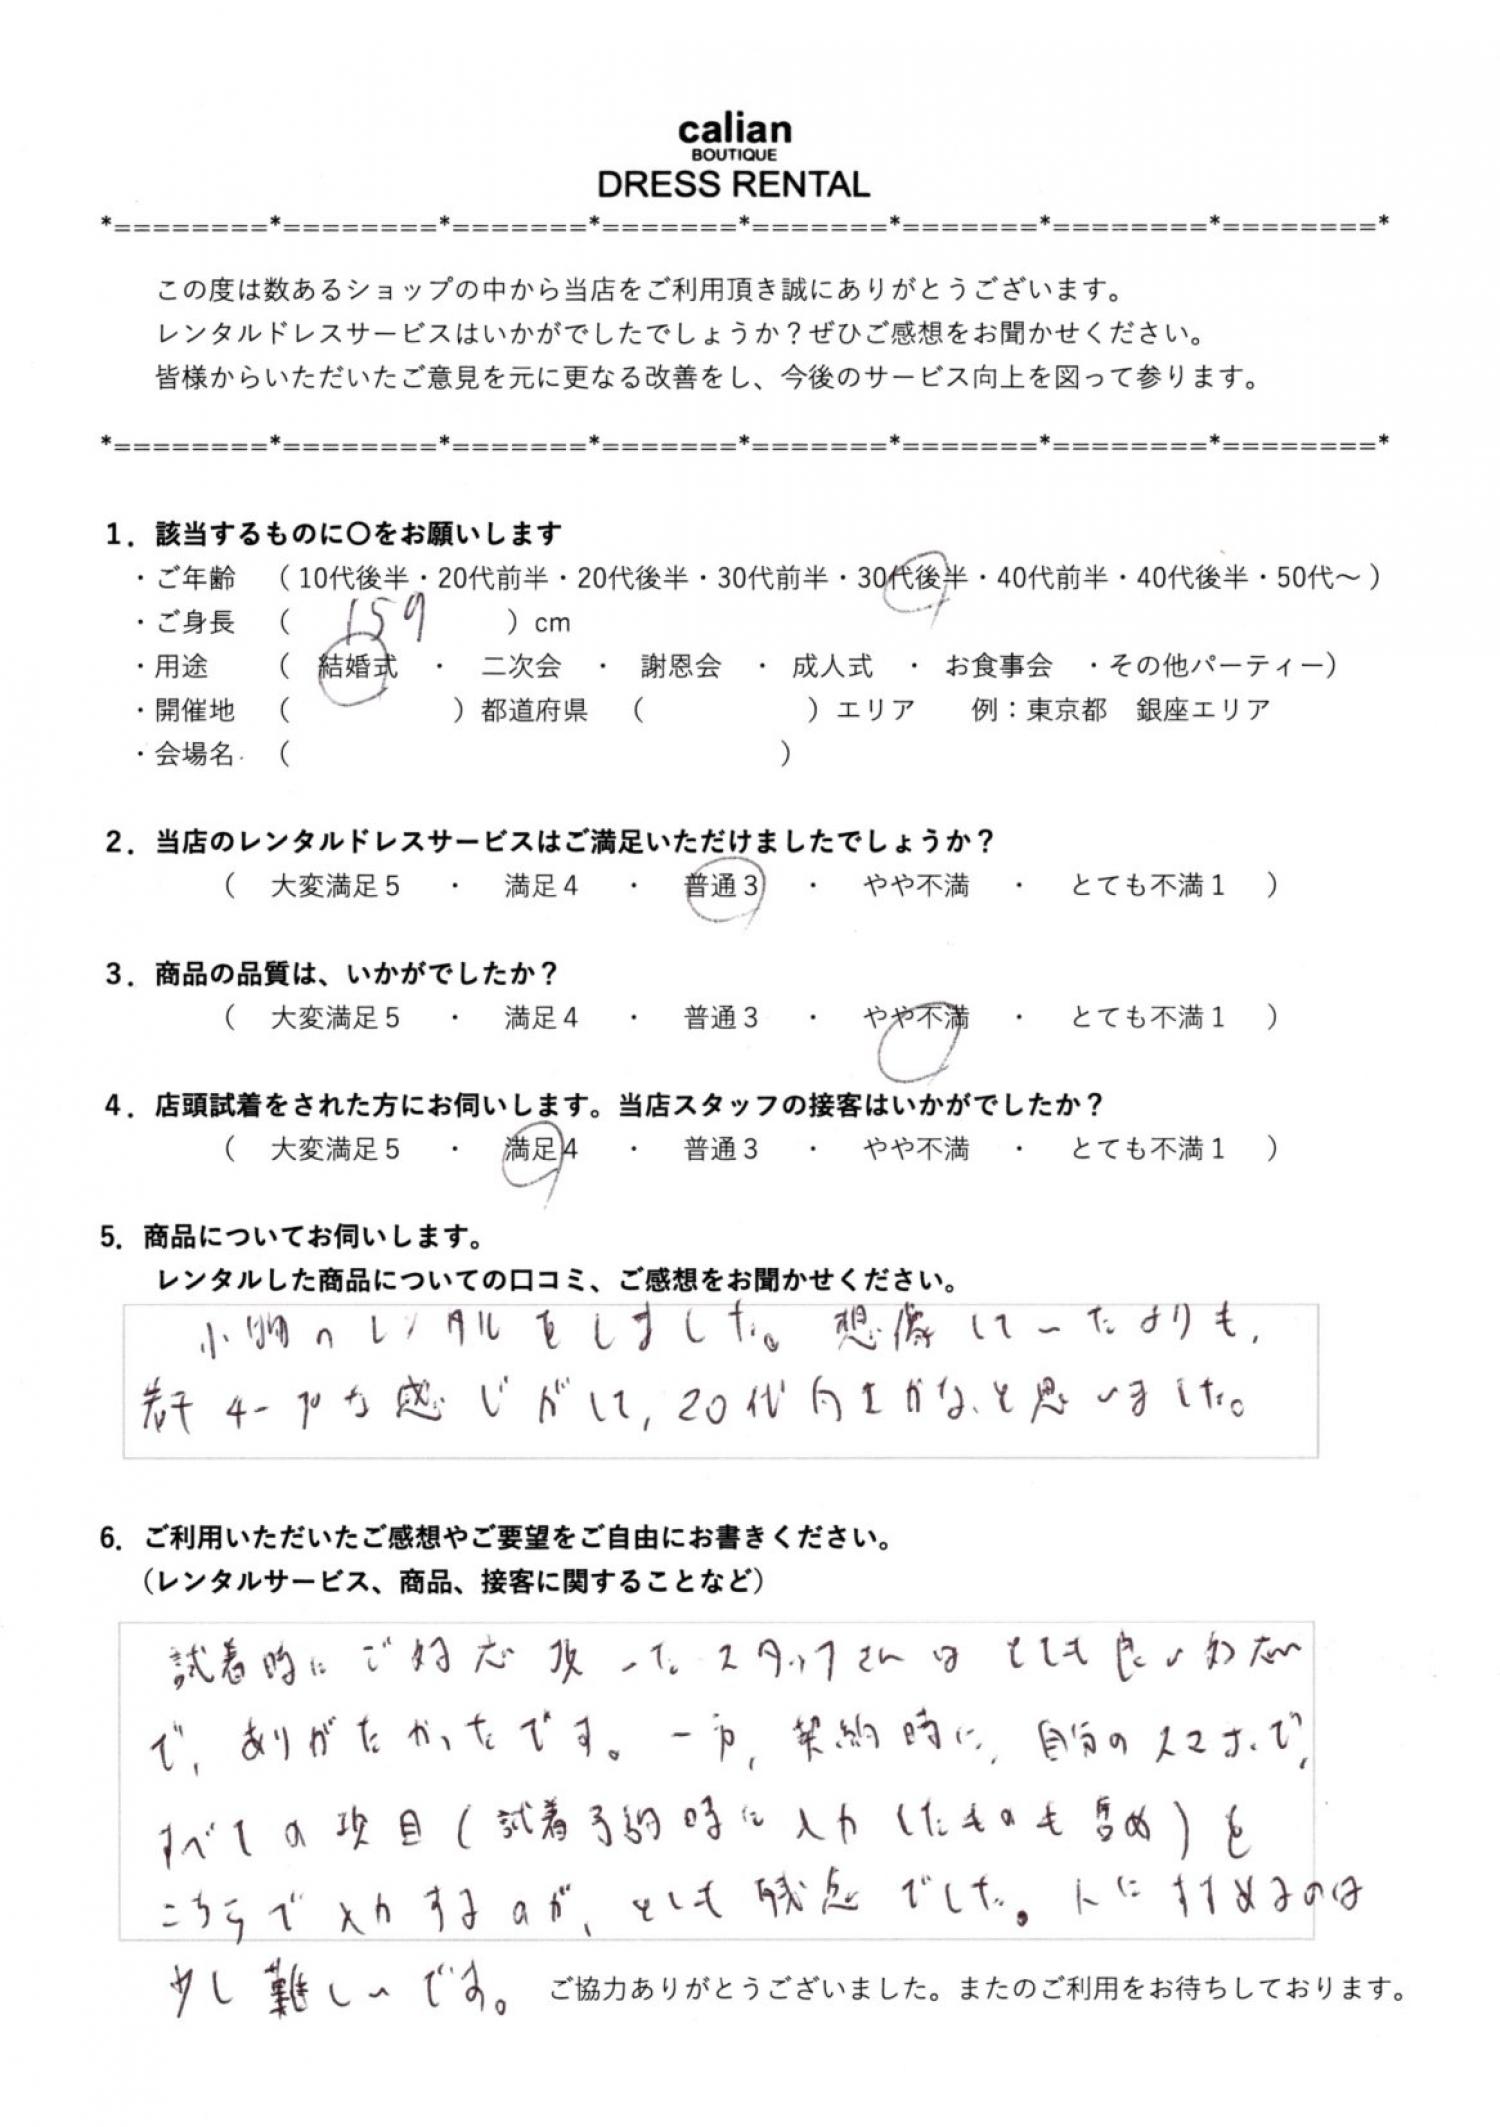 calian
BOUTIQUE
DRESS RENTAL
*========*========*=======*=======*=======*=======*========*========*
この度は数あるショップの中から当店をご利用頂き誠にありがとうございます。
レンタルドレスサービスはいかがでしたでしょうか？ぜひご感想をお聞かせください。
皆様からいただいたご意見を元に更なる改善をし、今後のサービス向上を図って参ります。
*========*========*=======*=======*=======*=======*========*========*
1．該当するものに〇をお願いします
・ご年齢　（ 10代後半・20代前半・20代後半・30代前半・30代後半・40代前半・40代後半・50代～ ）
・ご身長　（　159　）cm
・用途　（　結婚式　・　二次会　・　謝恩会　・　成人式　・　お食事会　・その他パーティー）
・開催地　（　　　　　　）都道府県　（　　　　　　）エリア　　例：東京都　銀座エリア
・会場名　（　　　　　　　　　　　　　　　　　　）
2．当店のレンタルドレスサービスはご満足いただけましたでしょうか？
（　大変満足５　・　満足４　・　普通３　・　やや不満　・　とても不満１　）
3．商品の品質は、いかがでしたか？
（　大変満足５　・　満足４　・　普通３　・　やや不満　・　とても不満１　）
4．店頭試着をされた方にお伺いします。当店スタッフの接客はいかがでしたか？
（　大変満足５　・　満足４　・　普通３　・　やや不満　・　とても不満１　）
5．商品についてお伺いします。
レンタルした商品についての口コミ、ご感想をお聞かせください。
小物のレンタルをしました。想像していたよりも、
若干チープな感じがして、20代向きかな、と思いました。
6．ご利用いただいたご感想やご要望をご自由にお書きください。
（レンタルサービス、商品、接客に関することなど）
試着時にご対応頂いたスタッフさんはとても良い対応
で、ありがたかったです。一方、契約時に、自分のスマホで、
すべての項目（試着予約時に入力したものも含め）を
こちらで入力するのが、とても残念でした。人にすすめるのは
少し難しいです。 ご協力ありがとうございました。またのご利用をお待ちしております。